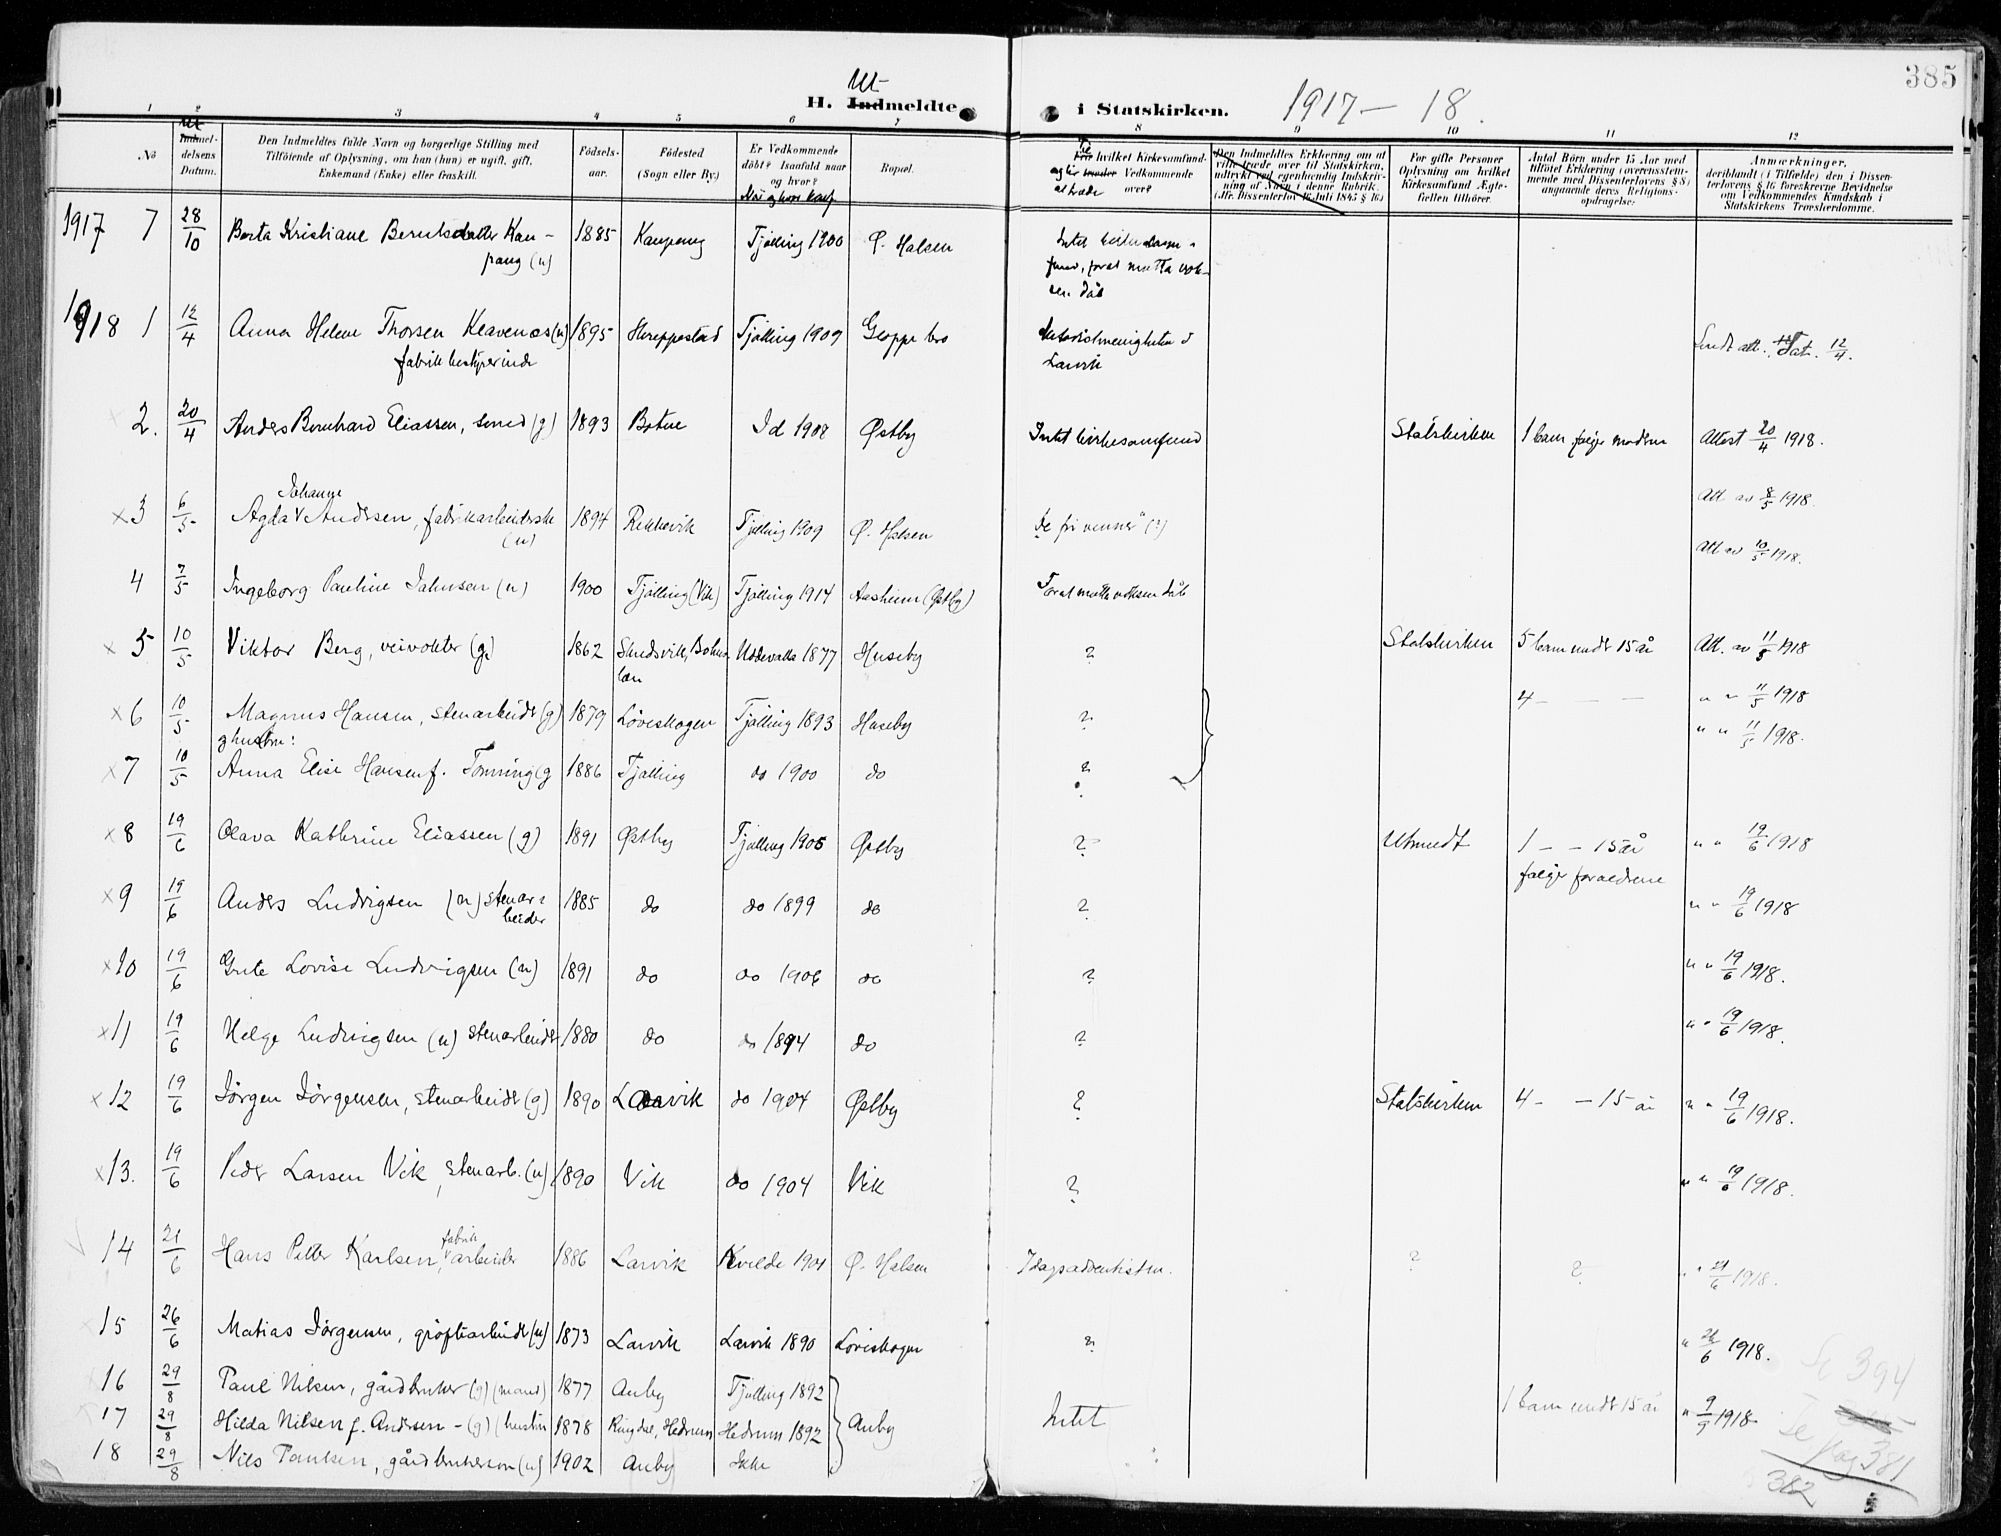 385
Ut-
H. Indmeldte i Statskirken. 1917 — 18.
1 2 3 4 5 6 7 8 9 10 11 12
No
Ut
Indmel-
delsens
Datum.
Den Indmeldtes fulde Navn og borgerlige Stilling med
Tilføiende af Oplysning, om han (hun) er ugift, gift,
Enkemand (Enke) eller fraskilt.
Fødsels-
aar.
Fødested
(Sogn eller By.)
Er Vedkommende
døbt? Isaafald naar
og hvor?
Når og hvor konf.
Bopæl.
Fra hvilket Kirkesamfund
træder Vedkommende
over?
Den Indmeldtes Erklæring om at
ville træde over til Statskirken,
udtrykt ved egenhændig Indskriv-
ning af Navn i denne Rubrik.
(Jfr. Dissenterlov 16 Juli 1845 § 16.)
For gifte Personer
Oplysning om hvilket
Kirkesamfund Ægte-
fællen tilhører.
Antal Børn under 15 Aar med
tilføiet Erklæring (overensstem-
mende med Dissenterlovens § 8)
angaaende deres Religions-
opdragelse.
Anmærkninger,
deriblandt (i Tilfælde) den i Dissen-
terlovens § 16 foreskrevne Bevidnelse
om Vedkommendes Kundskab i
Statskirkens Troesherdomme.
1917 7 28/10 Berta Kristiane Berntsdatter Kau- 1885 Kaupang Tjølling 1900 Ø. Halsen
pang (u)
1918 1 12/4 Anna Helene Thorsen Klavenes (u) 1895 Tjølling 1909 Gloppe bro
fabrikbestyrerinde
Larvik
12/4.
2. 20/4 Anders Bernhard Eliassen, smed (g) 1893 Botne Id 1908 Østby Intet kirkesamfund Statskirken 1 barn følger modern Attest 20/4 1918.
Johanne
×3 6/5 Agda Andersen, fabrikarbeiderske 1894 Rekkevik Tjølling 1909 Ø. Halsen "De fri venner" (?) Att. av 8/5 1918.
(u)
4 7/5 Ingeborg Pauline Jahnsen (u) 1900 Tjølling (Vik) Tjølling 1914 Aasheim (Østby) Forat motta voksen dåb Att. av 10/5 1918.
×5 10/5 Viktor Berg, veivokter (g) 1862 Uddevalla 1877 Huseby ? Statskirken 5 barn under 15 år Att. av 11/5 1918
×6 10/5 Magnus Hansen, stenarbeider (g) 1879 Løveskogen Tjølling 1893 Huseby ? 4 — — — " " 11/5 1918
og hustru:
×7 10/5 Anna Elise Hansen f. Tonning (g 1886 Tjølling do 1900 do ? " " 11/5 1918.
×8 19/6 Olava Kathrine Eliassen (g) 1891 Østby Tjølling 1905 Østby ? Utmeldt 1 — — 15 år " " 19/6 1918
følger forældrene
×9 19/6 Anders Ludvigsen (u) stenar- 1885 do do 1899 do ? " " 19/6 1918
beider
×10 19/6 Grete Lovise Ludvigsen (u) 1891 do do 1906 do ? " " 19/6 1918.
×11 19/6 Helge Ludvigsen (u) stenarbeider 1880 do do 1894 do ? " " 19/6 1918.
×12 19/6 Jørgen Jørgensen, stenarbeider (g) 1890 Larvik do 1904 Østby ? Statskirken 4 — — 15 år " " 19/6 1918.
×13. 19/6 Peder Larsen Vik, stenarb. (u) 1890 Vik do 1904 Vik ? " " 19/6 1918.
14 21/6 Hans Petter Karlsen, fabrikarbeider 1886 Larvik Kvelde 1901 Ø. Halsen 7dagsadventisten. ? ? " " 21/6 1918.
15 26/6 Matias Jørgensen, grøftearbeider (u) 1873 Larvik Larvik 1890 Løveskogen ? " 26/6 1918.
16 29/8 Paul Nilsen, gårdbruker (g) (mand) 1877 Auby Tjølling 1892
17 29/8 Hilda Nilsen f. Andersen - (g) (hustru 1878 Ringdal, Hedrum Hedrum 1892 Auby Intet 1 barn under 15 år " 9/9 1918
18 29/8 Nils Paulsen, gårdbrukersøn (u) 1902 Auby Ikke
Se 394
Se pag 381
382